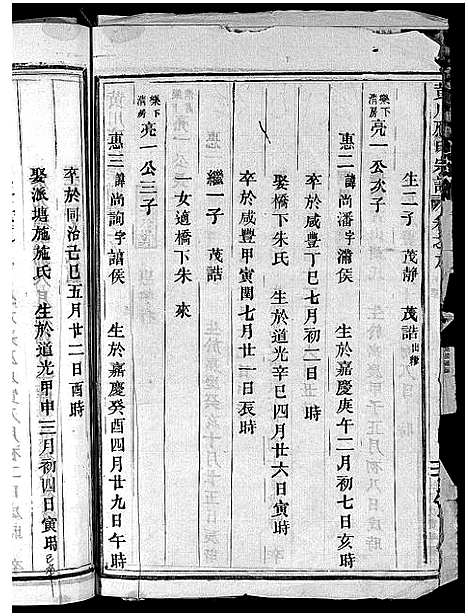 生二子　茂靜　茂誥出繼
樂下清房亮一公次子
惠二諱尚潘字瀟侯　生於嘉慶庚午二月初七日亥時
卒於咸豐丁巳七月初二日丑時
娶橋下朱氏　生於道光辛巳四月廿六日寅時
卒於咸豐甲寅閏七月廿一日辰時
繼一子　茂誥
一女適橋下朱來
樂下清房亮一公三子
惠三諱尚詢字諳侯　生於嘉慶癸酉四月廿九日午時
卒於同治己巳五月廿二日酉時
娶派塘施施氏　生於道光甲申三月初四日寅時